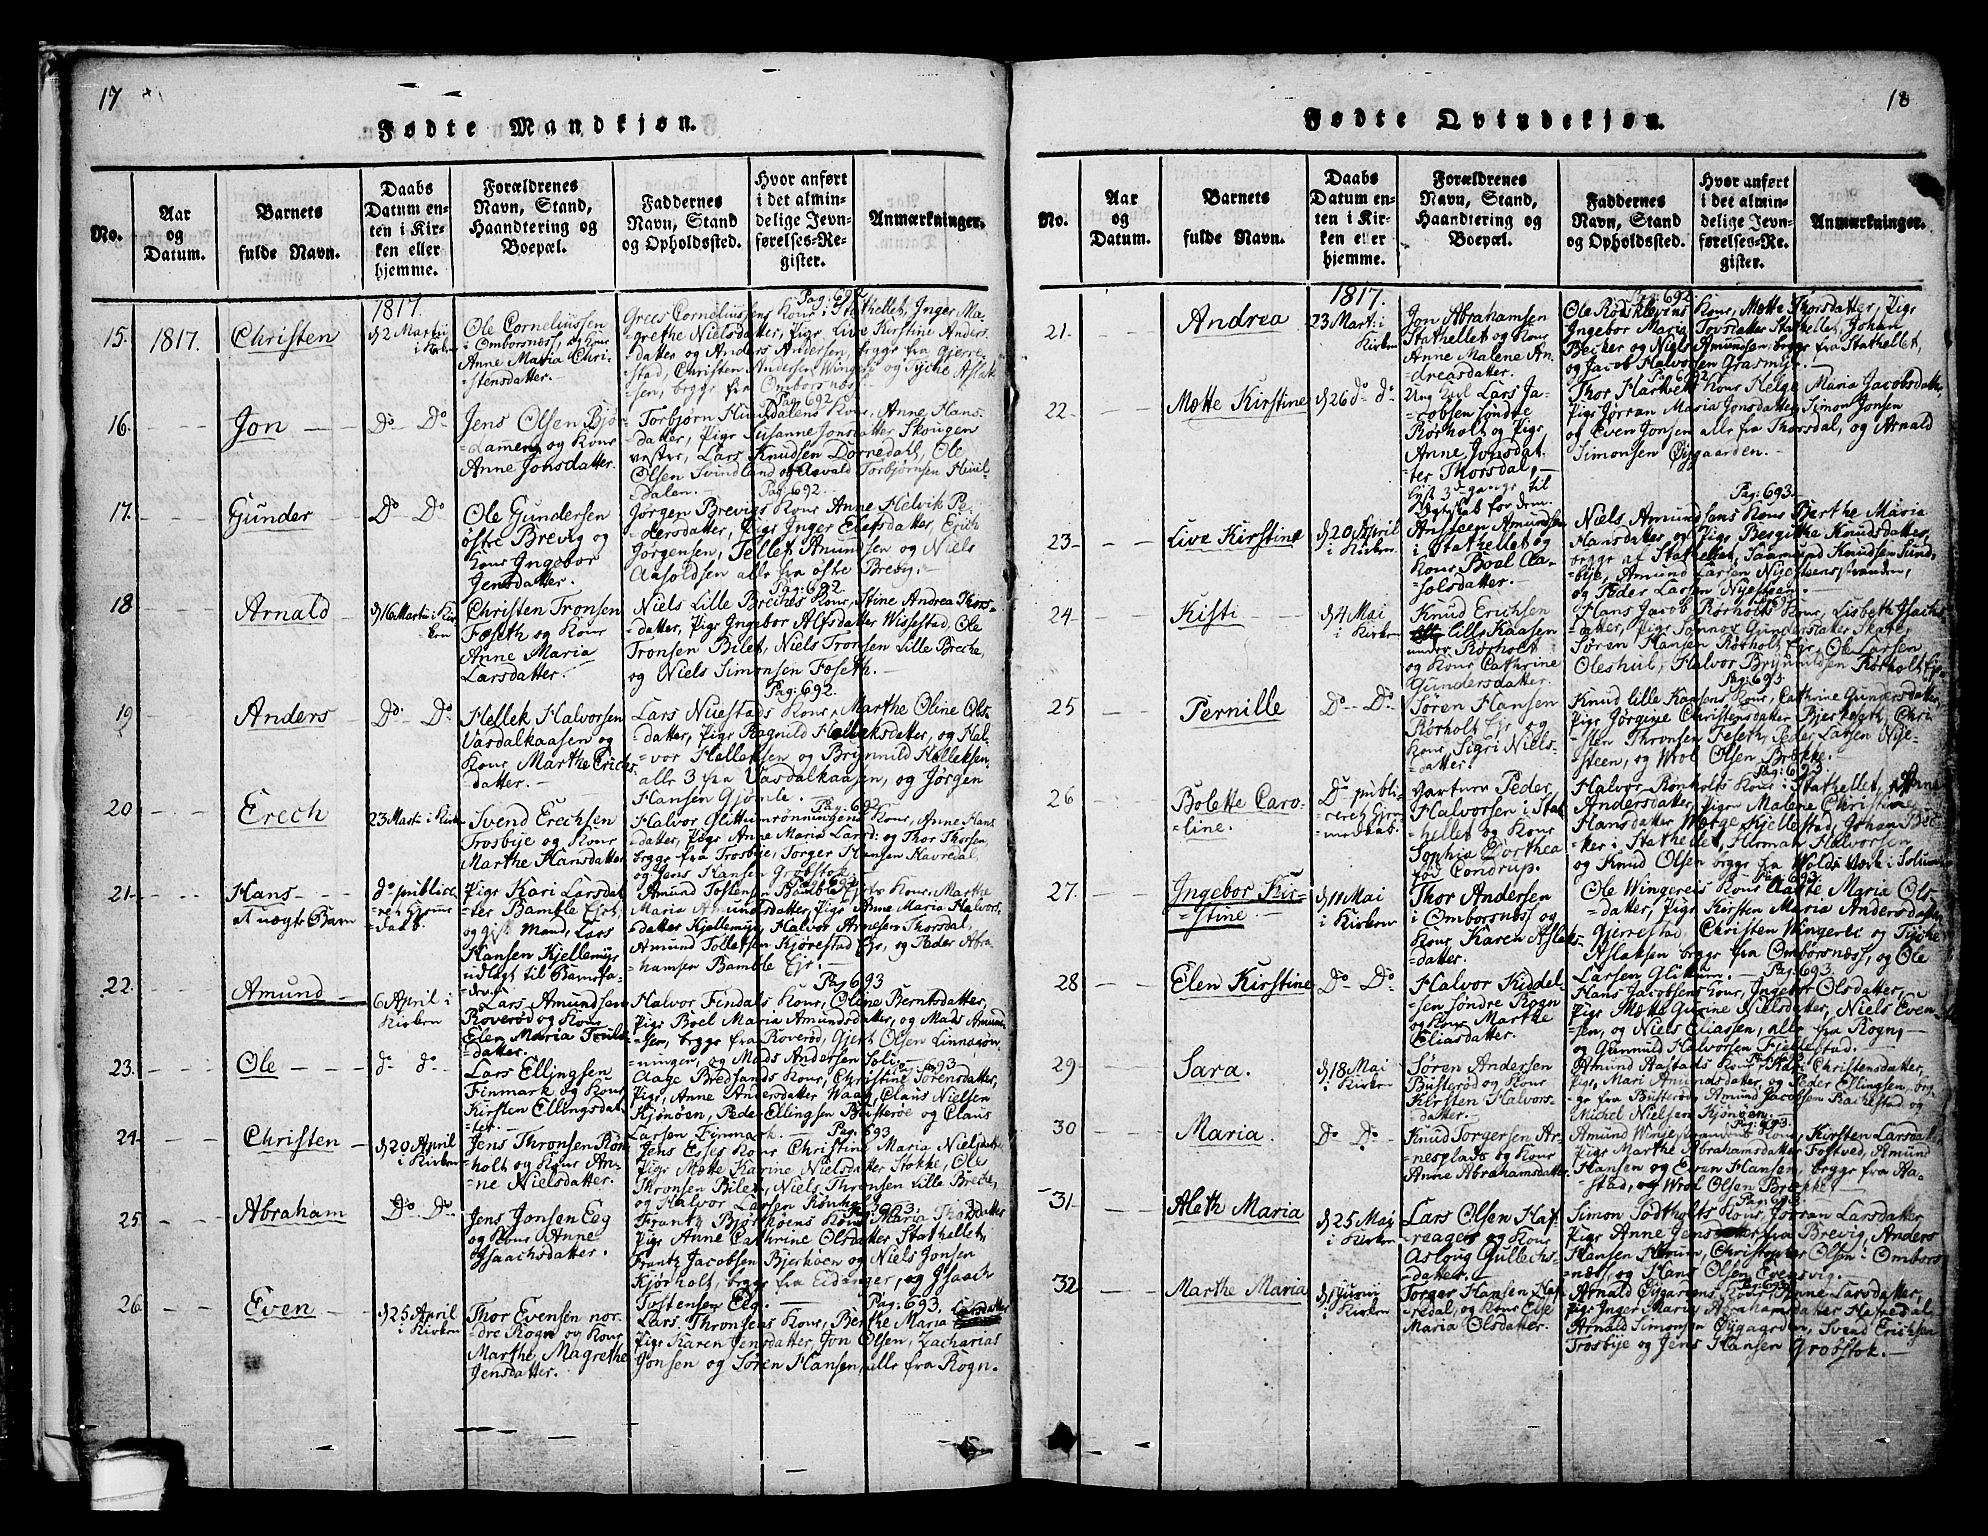 17
Fødte Mandkjøn.
No.
Aar
og
Datum.
Barnets
fulde Navn.
Daabs
Datum en-
ten i Kir-
ken eller
hjemme.
Forældrenes
Navn, Stand,
Haandtering og
Boepæl.
Faddernes
Navn, Stand
og Opholdssted.
Hvor anført
i det almin-
delige Jevn-
førelses-Re-
gister.
Anmærkninger.
1817.
15. 1817. Christen
d 2 Martii
i Kirken
Ole Corneliussen
i Omborsnæs, og Kone
Anne Maria Chri-
stensdatter.
Pag: 692
Grees Corneliussens Kone i Stathellet, Inger Ma-
grethe Nielsdatter, Pige Live Kirstine Anders-
datter og Anders Andersen, begge fra Gjerre-
stad, Christen Andersen Wingerei og Tyche Aslak-
sen, begge fra Omborsnæs.
16. Jon
Do Do
Jens Olsen Bjø-
dammen og Kone
Anne Jonsdatter.
Pag: 692
Torbjørn Hvildalens Kone, Anne Hans-
datter, Pige Susanne Jonsdatter Skougen
vester, Lars Knudsen Dornedalt, Ole
Olsen Svindland og Aavald Torbjørnsen Hvil-
dalen.
17. Gunder
Do Do
Ole Gundersen
østre Brevig og
Kone Ingebor
Jensdatter.
Pag: 692.
Jørgen Brevigs Kone Anne Helvik Pe-
dersdatter, Pige Inger Elefsdatter, Erich
Jørgensen, Tellef Amundsen og Niels
Aasoldsen alle fra østre Brevig.
18 Arnald
d 16 Marti i Kir-
ken
Christen Tronsen
Foseth og Kone
Anne Maria
Larsdatter.
Pag: 692
Niels Lille Breches Kone, Stine Andrea Thors-
datter, Pige Ingebor Alfsdatter Wissestad, Ole
Tronsen Bilet, Niels Tronsen Lille Breche,
og Niels Simonsen Foseth.
19 Anders
Do Do
Hellek Halvorsen
Vasdalkaasen og
Kone Marthe Erichs-
datter.
Pag: 692.
Lars Nuestads Kone, Marthe Oline Ols-
datter, Pige Ragnild Halleksdatter, og Hal-
vor Halleksen og Brynnild Halleksen,
alle 3 fra Vasdalkaasen, og Jørgen
Hansen Gjømle.
20 Erech
23 Marti i Kirken
Svend Erechsen
Trosbye og Kone
Marthe Hansdatter
Pag: 692
Halvor Glittumrønningens Kone, Anne Hans
datter, Pige Anne Maria Larsd: og Thor Thorsen,
begge fra Trosbye, Torger Hansen Havredal,
og Jens Hansen Grobstok.
21. Hans
et uægte Barn
do publice-
ret Hjemme-
daab.
Pige Kari Larsdat-
ter Bamble Ejer,
og gift Mand, Lars
Hansen Kjellemyr
udlagt til Barnefa-
der.
Amund Tostensen Bamble Ejers Kone, Marthe
Maria Amundsdatter, Pige Anne Maria Halvors-
datter Kjellemyr, Halvor Arnesen Thorsdal,
Amund Tollefsen Kjørestad Ejer, og Peder Abra-
hamsen Bamble Ejer.
22. Amund
6 April i
Kirken
Lars Amundsen
Roverød og Kone
Elen Maria
datter.
Pag: 693
Halvor Findals Kone, Oline Berntsdatter,
Pige Boel Maria Amundsdatter, og Mads Amund-
sen, begge fra Roverød, Gjert Olsen Linnerøn-
ningen, og Mads Andersen Solie.
23. Ole
do do
Lars Ellingsen
Finmark og Kone
Kirsten Ellingsdat-
ter.
693
Aage Bredsands Kone, Christine Sørensdatter,
Pige, Anne Andersdatter Waag, Claus Nielsen
Kjønøen, Peder Ellingsen Busterøe og Claus
Larsen Finmark.
24 Christen
d 20 April
i Kirken
Jens Thronsen Røn-
holt og Kone An-
ne Nielsdatter.
Pag: 693
Jens Eses Kone Christine Maria Nielsdatter,
Pige Mette Karine Nielsdatter Stokke, Ole
Thronsen Bilet, Niels Thronsen Lille Breche,
og Halvor Larsen Rønholt.
25 Abraham
Do Do
Jens Jonsen Eeg
og Kone Anne
Isaachsdatter.
Pag: 693.
Frantz Bjerkøens Kone Maria Thorsdatter
Pige Anne Cathrine Olsdatter Stathellet,
Frantz Jacobsen Bjerkøen og Niels Jonsen
Kjørholt, begge fra Eidanger, og Isaach
Tostensen Eeg.
26 Even
d 25 April
i Kirken
Thor Evensen nor-
dre Rogn og Kone
Marthe Magrethe
Jensdatter.
Pag: 693.
Lars Thronsens Kone, Berthe Maria Larsdatter
Pige Karen Jensdatter, Jon Olsen, Zacharias
Jonsen og Søren Hansen, alle fra Rogn.
18
Fødte Qvindekjøn.
No.
Aar
og
Datum.
Barnets
fulde Navn.
Daabs
Datum en-
ten i Kir-
ken eller
hjemme.
Forældrenes
Navn, Stand,
Haandtering og
Boepæl.
Faddernes
Navn, Stand
og Opholdssted.
Hvor anført
i det almin-
delige Jevn-
førelses-Re-
gister.
Anmærkninger.
1817.
21. Andrea
23 Mart i
Kirken
Jon Abrahamsen
Stathellet og Kone
Anne Malene An-
dreasdatter.
Pag: 692
Ole Rødsklevens Kone, Mette Thorsdatter, Pige
Ingebor Maria Tovsdatter Stathellet, Johan
Becker og Niels Amundsen, begge fra Stathellet,
og Jacob Halvorsen Grasmyr.
22. Mette Kirstine
d 26 do do
Ung Karl Lars Ja-
cobsen søndre
Rørholt og Pige
Anne Jonsdat-
ter Thorsdal,
lyst 3de gange til
Ægteskab for dem.
692
Thor Harkels Kone Helge Maria Jacobsdatter,
Pige Jørran Maria Jonsdatter, Simon Jonsen
og Even Jonsen alle fra Thorsdal, og Arnald
Simonsen Øygaarden.
23. Live Kirstine
d 20 April
i Kirken
Ansteen Amundsen
i Stathellet og
Kone Boal Aa-
solsdatter.
Pag: 693.
Niels Amundsens Kone Berthe Maria
Hansdatter og Pige Bergithe Knudsdatter,
begge af Stathellet, Saamund Knudsen Sund-
bye, Amund Larsen Nysteensstranden,
og Peder Larsen Nyesteen.
24 Kisti
d 4 Mai
i Kirken
Knud Erichsen
lille Kaasen
under Rørholt
og Kone Cathrine
Gundersdatter.
Hans Jacob Rørholts Kone, Lisbeth Isachs-
datter, Pige Sonnov Gundersdatter Skate,
Søren Hansen Rørholt Ejer, Ole Larsen
Oleshul, Halvor Brynnildsen Rørholt Ejer.
25 Pernille
Do Do
Søren Hansen
Rørholt Ejer og
Kone, Sigri Niels-
datter.
Pag: 693
Knud Lille Kaasens Kone, Cathrine Gundersdatter,
Pige Jørgine Christensdatter Bjerkeseth, Chri-
sten Thronsen Feseth, Peder Larsen Nye-
steen, og Wrol Olsen Brække.
26 Bolette Caro-
line.
Do publi-
ceret Hjem-
medaab.
Vartum Peder
Halvorsen i Stat-
hellet og Kone
Sophia Dorthea
fød Condrup.
Pag: 693
Halvor Rønholts Kone i Stathellet, Anne
Andersdatter, Pige Malene Christine
Hansdatter Worge, Kjellestad, Johan Bec-
ker i Stathellet, Herman Halvorsen
og Knud Olsen begge fra Wolds Værk i Solum.
27. Ingebor Kir-
stine.
d 11 Mai
i Kirken
Thor Andersen
i Omborsnæs og
Kone Karen Aslaks-
datter.
Pag: 693.
Ole Wingereis Kone Aaste Maria Ols-
datter, Pige Kirsten Maria Andersdatter
Gjerrestad Christen Wingerei og Tyche
Aslaksen begge fra Omborsnæs, og Ole
Larsen Glittum.
28 Elen Kirstine
Do Do
Halvor Kiddel-
sen søndre Rogn
og Kone Marthe
Eliasdatter.
Pag: 693.
Hans Jacobsens Kone, Ingebor Olsdatter,
Pige Mette Gurine Nielsdatter, Niels Even-
sen, og Niels Eliassen, alle fra Rogn,
og Gunnuld Halvorsen Fjellestad.
29 Sara.
d 18 Mai
i Kirken
Søren Andersen
Busterød og Kone
Kirsten Halvors-
datter.
Amund Aastads Kone, Kari Christensdatter,
Pige, Mari Amundsdatter, og Peder Ellingsen, beg-
ge fra Busterød, Amund Jacobsen Rachestad og
Michel Nielsen Kjønøen.
30 Maria.
Do Do
Knud Torgersen Ar-
nesplads og Kone
Anne Abrahamsdatter.
Pag: 693.
Amund Wingestrandens Kone, Kirsten Larsdatter
Pige Marthe Abrahamsdatter Fostved, Amund
Hansen og Even Hansen, begge fra Aa-
stad, og Wrol Olsen Brække.
31 Aleth Maria
d 25 Mai
i Kirken
Lars Olsen Haf-
reager og Kone
Asloug Gullechs-
datter.
Pag: 693.
Simon Tødtholts Kone, Jørran Larsdatter,
Pige Anne Jensdatter fra Brevig, Anders
Hansen Hærum, Christopher Olsen i Ombors-
næs, og Hans Olsen Evensvig.
32 Marthe Maria
d 1 Junij
i Kirken
Torger Hansen Haf-
redal, og Kone Else
Maria Olsdatter.
Pag: 693.
Arnald Øygarens Kone Anne Larsdatter,
Pige Inger Maria Abrahamsdatter Hafredal
Arnald Simonsen Øygaarden, Svend Erichsen
Trosbye og Jens Hansen Grobstok.